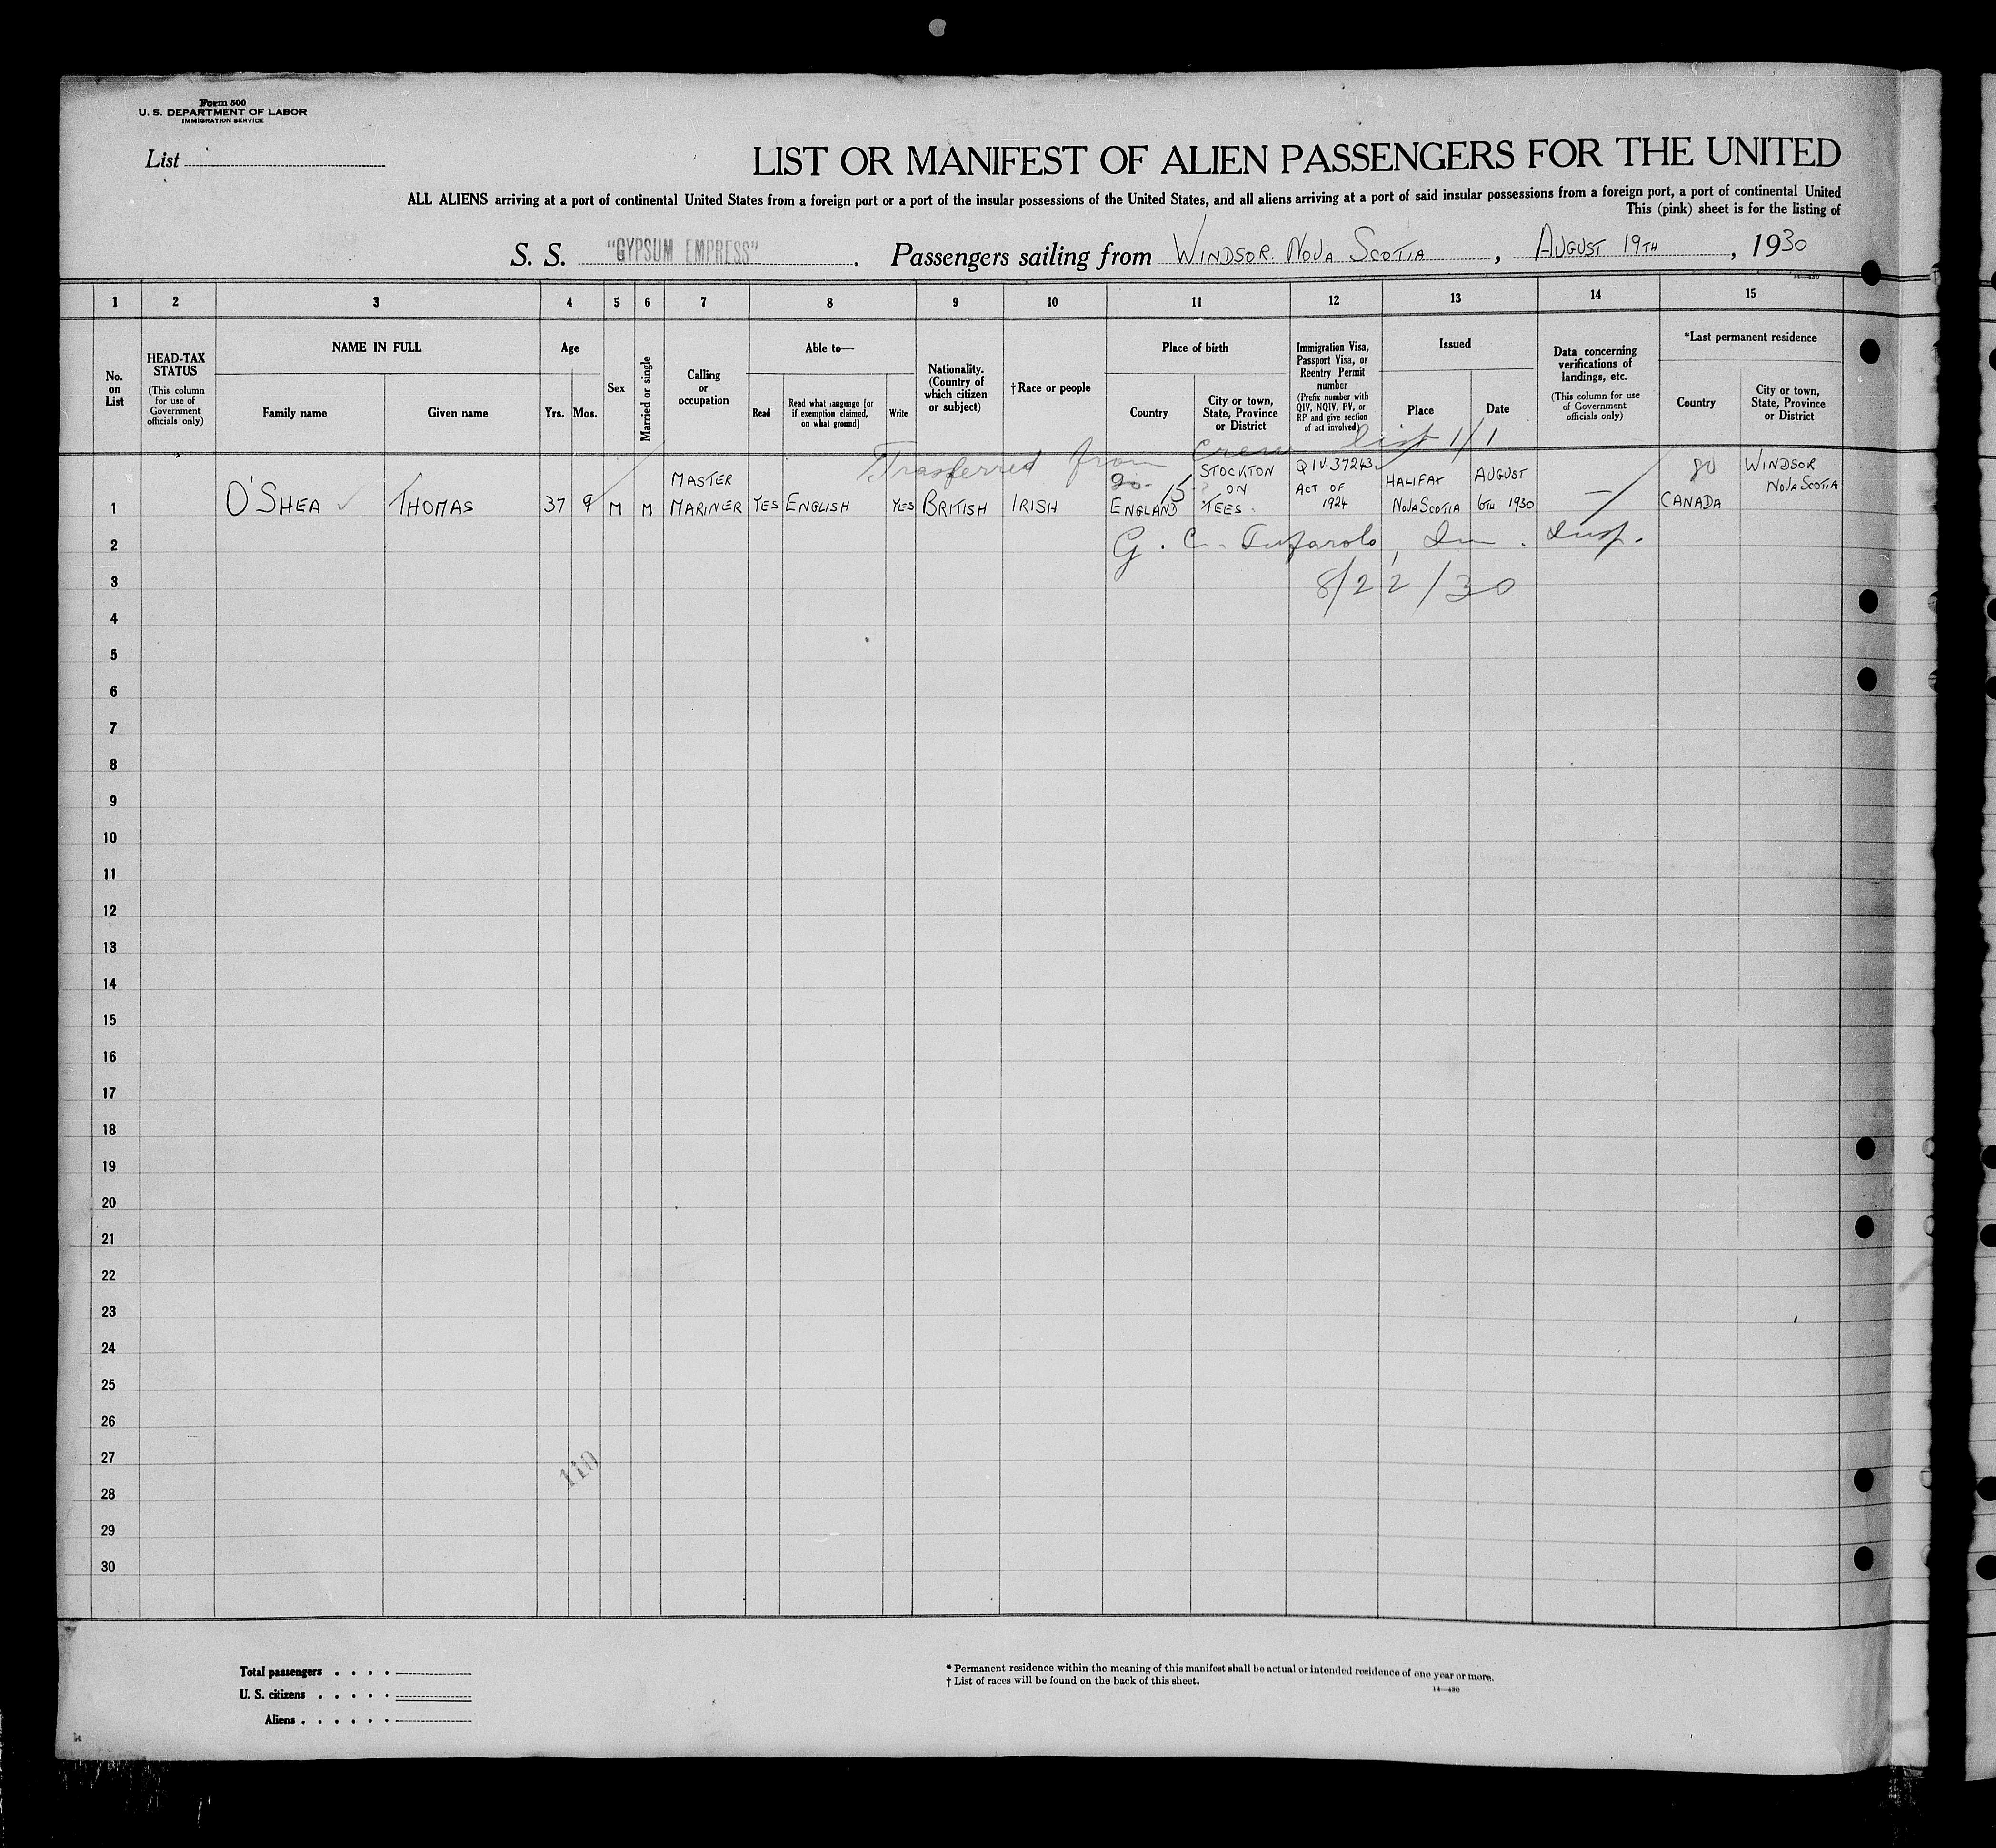 Form 500
U. S. DEPARTMENT OF LABOR
IMMIGRATION SERVICE
List
LIST OR MANIFEST OF ALIEN PASSENGERS FOR THE UNITED
ALL ALIENS arriving at a port of continental United States from a foreign port or a port of the insular possessions of the United States, and all aliens arriving at a port of said insular possessions from a foreign port, a port of continental United
This (pink) sheet is for the listing of
S. S. "GYPSUM EMPRESS". Passengers sailing from WINDSOR. NOVA SCOTIA, AUGUST 19TH, 1930
14-430
1 2 3 4 5 6 7 8 9 10 11 12 13 14 15
No. on List
HEAD-TAX STATUS
(This column for use of Government officials only)
NAME IN FULL
Family name
Given name
Age
Yrs.
Mos.
Sex
Married or single
Calling or occupation
Able to—
Read
Read what language [or if exemption claimed, on what ground]
Write
Nationality. (Country of which citizen or subject)
†Race or people
Place of birth
Country
City or town, State, Province or District
Immigration Visa, Passport Visa, or Reentry Permit number
(Prefix number with QIV, NQIV, PV, or RP and give section of act involved)
Issued
Place
Date
Data concerning verifications of landings, etc.
(This column for use of Government officials only)
*Last permanent residence
Country
City or town, State, Province or District
Trasferred from Crew list 1/1
1 O'SHEA THOMAS 37 9 M M MASTER MARINER YES ENGLISH YES BRITISH IRISH 15 ENGLAND STOCKTON ON TEES. QIV.37243 ACT OF 1924 HALIFAX NOVA SCOTIA AUGUST 6TH 1930 80 CANADA WINDSOR NOVA SCOTIA
2 G. C. Im. Insp.
3 8/22/30
4
5
6
7
8
9
10
11
12
13
14
15
16
17
18
19
20
21
22
23
24
25
26
27
110
28
29
30
Total passengers . . . .
U. S. citizens . . . . .
Aliens . . . . . .
* Permanent residence within the meaning of this manifest shall be actual or intended residence of one year or more.
† List of races will be found on the back of this sheet.
14-430